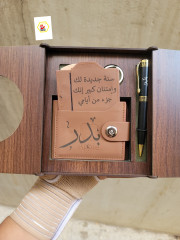 سنة جديدة لك
وإمتنان كبير إنك
جزء من أيامي
بدر